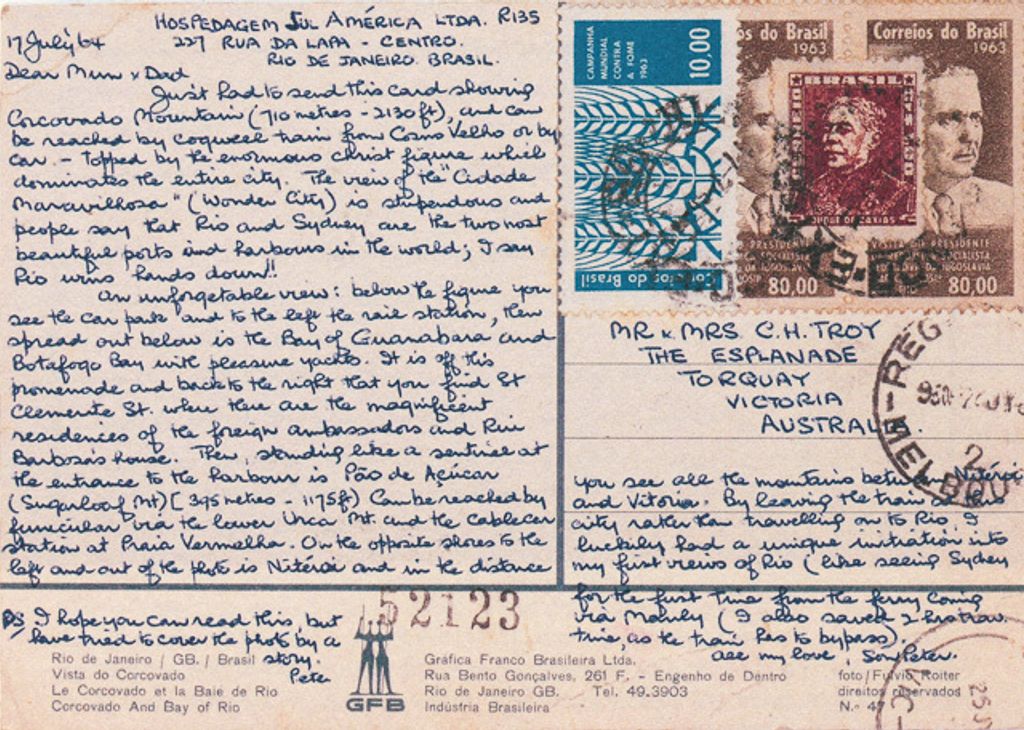 HOSPEDAGEM SUL AMÉRICA LTDA. R135
17 July 64
227 RUA DA LAPA - CENTRO.
RIO DE JANEIRO. BRASIL.
Dear Mum & Dad
Just had to send this card showing
Corcovado Mountain (710 metres - 2130 ft), and can
be reached by cogweel train from Cosmo Velho or by
car. - Topped by the enormous Christ figure which
dominates the entire city. The view of the "Cidade
Maravilhosa" (Wonder City) is stupendous and
people say that Rio and Sydney are the two most
beautiful ports and harbours in the world; I say
Rio wins hands down!!
An unforgetable view: below the figure you
see the car park and to the left the rail station, then
spread out below is the Bay of Guanabara and
Botafogo Bay with pleasure yachts. It is off this
promenade and back to the right that you find St
Clemente St. where there are the magnificent
residences of the foreign ambassadors and Rui
Barbosa's house. Then, standing like a sentinel at
the entrance to the harbour is Pão de Açúcar
(Sugarloaf Mt) [395 metres - 1175 ft) Can be reached by
funicular via the lower Urca Mt. and the cablecar
station at Praia Vermelha. On the opposite shores to the
left and out of the photo is Niterói and in the distance
you see all the mountains between Niterói
and Vitoria. By leaving the train
city rather than travelling on to Rio, I
luckily had a unique initiation into
my first views of Rio (like seeing Sydney
for the first time from the ferry coming
via Manly (I also saved 2 hrs train
time, as the train has to bypass).
All my love, Son Peter.
PS I hope you can read this, but
have tried to cover the photo by a
story.
Peter
MR & MRS. C.H. TROY
THE ESPLANADE
TORQUAY
VICTORIA
AUSTRALIA.
CAMPANHA
MUNDIAL
CONTRA
A FOME
1963
10,00
Correios do Brasil
os do Brasil
1963
PRESIDENTE
80,00
BRASIL
DUQUE DE CAXIAS
Correios do Brasil
1963
VISITA DO PRESIDENTE
80,00
REG
MELBOU
2
52123
GFB
Rio de Janeiro / GB. / Brasil
Vista do Corcovado
Le Corcovado et la Baie de Rio
Corcovado And Bay of Rio
Gráfica Franco Brasileira Ltda.
Rua Bento Gonçalves, 261 F. - Engenho de Dentro
Rio de Janeiro GB. Tel. 49.3903
Indústria Brasileira
foto/Fulvio Roiter
direitos reservados
N.º 47